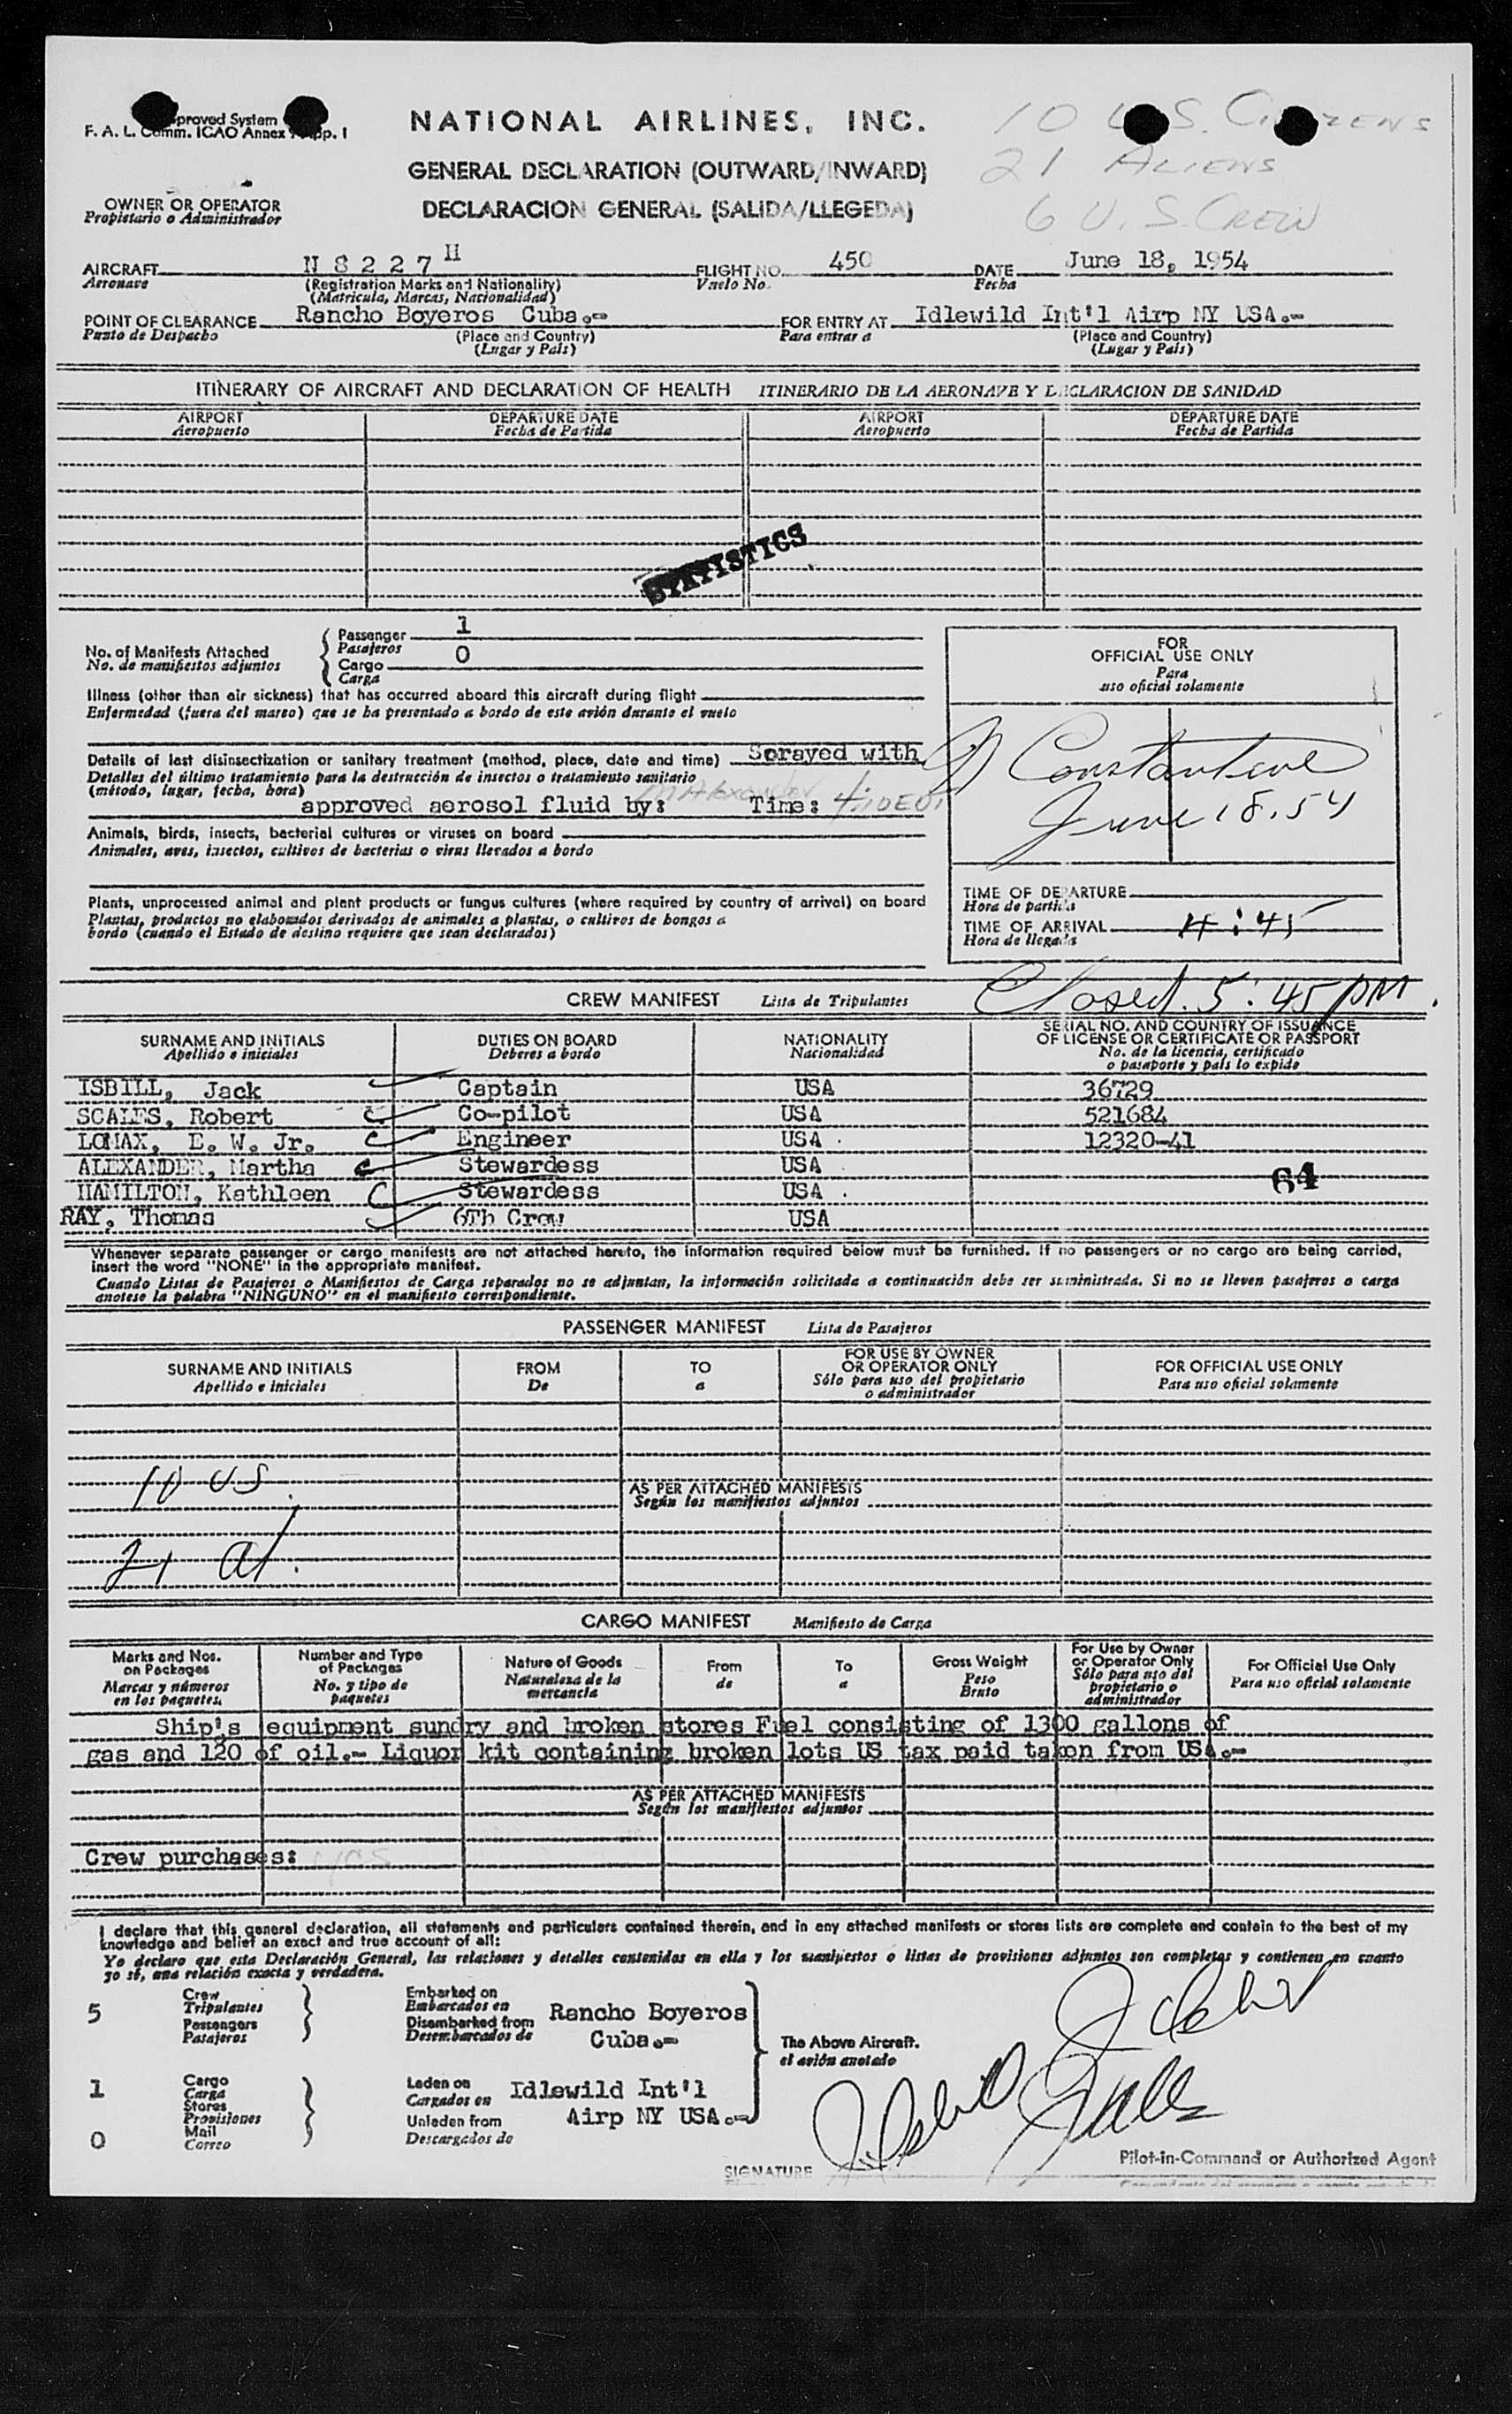 Approved System
F. A. L. Comm. ICAO Annex App. I
NATIONAL AIRLINES, INC.
10 U.S. CITIZENS
21 ALIENS
6 U.S. CREW
GENERAL DECLARATION (OUTWARD/INWARD)
DECLARACION GENERAL (SALIDA/LLEGEDA)
OWNER OR OPERATOR
Propietario o Administrador
AIRCRAFT N 8 2 2 7 H FLIGHT NO. 450 DATE June 18, 1954
Aeronave (Registration Marks and Nationality) Vuelo No. Fecha
(Matricula, Marcas, Nacionalidad)
POINT OF CLEARANCE Rancho Boyeros Cuba.- FOR ENTRY AT Idlewild Int'l Airp NY USA.-
Punto de Despacho (Place and Country) Para entrar a (Place and Country)
(Lugar y País) (Lugar y País)
ITINERARY OF AIRCRAFT AND DECLARATION OF HEALTH ITINERARIO DE LA AERONAVE Y DECLARACION DE SANIDAD
AIRPORT DEPARTURE DATE AIRPORT DEPARTURE DATE
Aeropuerto Fecha de Partida Aeropuerto Fecha de Partida
STATISTICS
No. of Manifests Attached
No. de manifiestos adjuntos
Passenger 1
Pasajeros
Cargo 0
Carga
Illness (other than air sickness) that has occurred aboard this aircraft during flight
Enfermedad (fuera del mareo) que se ha presentado a bordo de este avión durante el vuelo
Details of last disinsectization or sanitary treatment (method, place, date and time) Sprayed with
Detalles del último tratamiento para la destrucción de insectos o tratamiento sanitario
(método, lugar, fecha, hora)
approved aerosol fluid by: M Alexander Time: 4:10EDT
Animals, birds, insects, bacterial cultures or viruses on board
Animales, aves, insectos, cultivos de bacterias o virus llevados a bordo
Plants, unprocessed animal and plant products or fungus cultures (where required by country of arrival) on board
Plantas, productos no elaborados derivados de animales a plantas, o cultivos de hongos a
bordo (cuando el Estado de destino requiere que sean declarados)
FOR
OFFICIAL USE ONLY
Para
uso oficial solamente
Constantine
June 18.54
TIME OF DEPARTURE
Hora de partida
TIME OF ARRIVAL 4:45
Hora de llegada
Closed. 5:45 PM.
CREW MANIFEST Lista de Tripulantes
SURNAME AND INITIALS DUTIES ON BOARD NATIONALITY SERIAL NO. AND COUNTRY OF ISSUANCE
OF LICENSE OR CERTIFICATE OR PASSPORT
Apellido e iniciales Deberes a bordo Nacionalidad No. de la licencia, certificado
o pasaporte y país lo expide
ISBILL, Jack Captain USA 36729
SCALES, Robert Co-pilot USA 521684
LOMAX, E. W. Jr. Engineer USA 12320-41
ALEXANDER, Martha Stewardess USA
64
HAMILTON, Kathleen Stewardess USA
RAY, Thomas 6Th Crew USA
Whenever separate passenger or cargo manifests are not attached hereto, the information required below must be furnished. If no passengers or no cargo are being carried,
insert the word "NONE" in the appropriate manifest.
Cuando Listas de Pasajeros o Manifiestos de Carga separados no se adjuntan, la información solicitada a continuación debe ser suministrada. Si no se lleven pasajeros o carga
anotese la palabra "NINGUNO" en el manifiesto correspondiente.
PASSENGER MANIFEST Lista de Pasajeros
SURNAME AND INITIALS FROM TO FOR USE BY OWNER
OR OPERATOR ONLY FOR OFFICIAL USE ONLY
Apellido e iniciales De a Sólo para uso del propietario
o administrador Para uso oficial solamente
10 US
AS PER ATTACHED MANIFESTS
Según los manifiestos adjuntos
21 al.
CARGO MANIFEST Manifiesto de Carga
Marks and Nos.
on Packages
Marcas y números
en los paquetes
Number and Type
of Packages
No. y tipo de
paquetes
Nature of Goods
Naturaleza de la
mercancia
From
de
To
a
Gross Weight
Peso
Bruto
For Use by Owner
or Operator Only
Sólo para uso del
propietario o
administrador
For Official Use Only
Para uso oficial solamente
Ship's equipment sundry and broken stores Fuel consisting of 1300 gallons of
gas and 120 of oil.- Liquor kit containing broken lots US tax paid taken from USA.-
AS PER ATTACHED MANIFESTS
Según los manifiestos adjuntos
Crew purchases: yes
I declare that this general declaration, all statements and particulars contained therein, and in any attached manifests or stores lists are complete and contain to the best of my
knowledge and belief an exact and true account of all:
Yo declaro que esta Declaración General, las relaciones y detalles contenidas en ella y los manifiestos o listas de provisiones adjuntos son completas y contienen en cuanto
yo sé, una relación exacta y verdadera.
5
Crew
Tripulantes
Passengers
Pasajeros
Embarked on
Embarcados en
Disembarked from
Desembarcados de
Rancho Boyeros
Cuba.-
The Above Aircraft.
el avión anotado
1
Cargo
Carga
Stores
Provisiones
0
Mail
Correo
Laden on
Cargados en
Unladen from
Descargados de
Idlewild Int'l
Airp NY USA.-
SIGNATURE
Pilot-in-Command or Authorized Agent